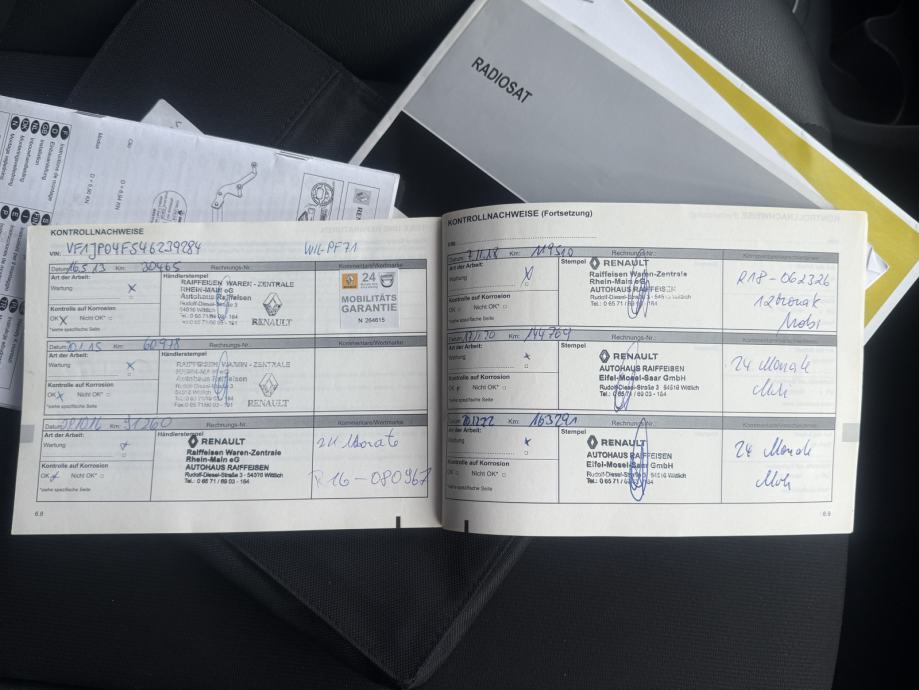 RADIOSAT
KONTROLLNACHWEISE
VIN: VF1JP04F546239284 WIL-PF71
Datum: 16.5.13 Km: 30465 Rechnungs-Nr.: Kommentare/Wortmarke
Art der Arbeit: Händlerstempel
Wartung x
RAIFFEISEN WAREN - ZENTRALE
RHEIN-MAIN eG
Autohaus Raiffeisen
Rudolf-Diesel-Straße 3
54516 Wittlich
RENAULT
24
MOBILITÄTS
GARANTIE
N 264615
Kontrolle auf Korrosion
OK x Nicht OK* □
*siehe spezifische Seite
Km: 60978 Rechnungs-Nr.: Kommentare/Wortmarke
Art der Arbeit: Händlerstempel
Wartung x
RAIFFEISEN WAREN - ZENTRALE
RHEIN-MAIN eG
Autohaus Raiffeisen
Rudolf-Diesel-Straße 3
54516 Wittlich
RENAULT
Kontrolle auf Korrosion
OK x Nicht OK* □
*siehe spezifische Seite
Km: 91260 Rechnungs-Nr.: Kommentare/Wortmarke
Art der Arbeit: Händlerstempel
Wartung x
RENAULT
Raiffeisen Waren-Zentrale
Rhein-Main eG
AUTOHAUS RAIFFEISEN
Rudolf-Diesel-Straße 3 · 54516 Wittlich
Tel.: 0 65 71 / 69 03 - 164
24 Monate
R16-080967
Kontrolle auf Korrosion
OK x Nicht OK* □
*siehe spezifische Seite
6.8
KONTROLLNACHWEISE (Fortsetzung)
VIN:
Km: 119510 Rechnungs-Nr.:
Art der Arbeit: Stempel
Wartung x
RENAULT
Raiffeisen Waren-Zentrale
Rhein-Main eG
AUTOHAUS RAIFFEISEN
Rudolf-Diesel-Straße 3 · 54516 Wittlich
Tel.: 0 65 71 / 69 03 - 164
R18-062326
12 Monate
Mobi
Kontrolle auf Korrosion
OK Nicht OK* □
*siehe spezifische Seite
Km: 144769 Rechnungs-Nr.:
Art der Arbeit: Stempel
Wartung x
RENAULT
AUTOHAUS RAIFFEISEN
Eifel-Mosel-Saar GmbH
Rudolf-Diesel-Straße 3 · 54516 Wittlich
Tel.: 0 65 71 / 69 03 - 164
24 Monate
Mobi
Kontrolle auf Korrosion
OK Nicht OK* □
*siehe spezifische Seite
Km: 163791 Rechnungs-Nr.:
Art der Arbeit: Stempel
Wartung x
RENAULT
AUTOHAUS RAIFFEISEN
Eifel-Mosel-Saar GmbH
Rudolf-Diesel-Straße 3 · 54516 Wittlich
Tel.: 0 65 71 / 69 03 - 164
24 Monate
Mobi
Kontrolle auf Korrosion
OK Nicht OK* □
*siehe spezifische Seite
6.9